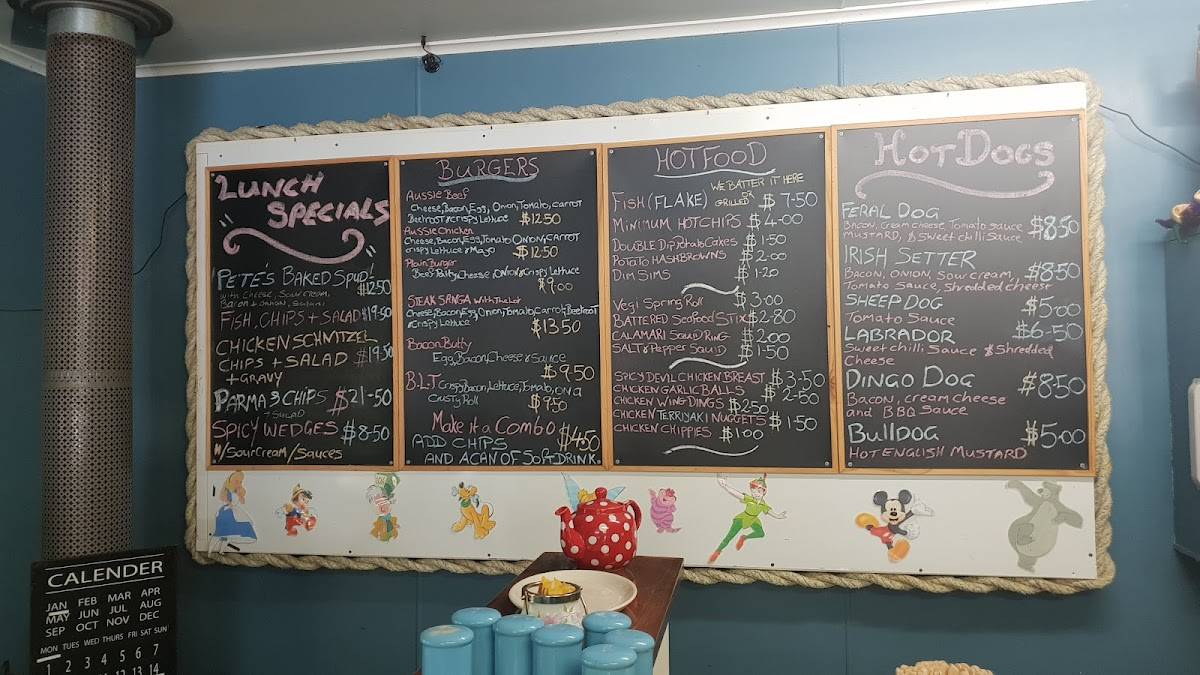 LUNCH
SPECIALS
"PETE'S BAKED SPUD"
WITH CHEESE, SOUR CREAM, $12.50
BACON + ONION,
FISH, CHIPS + SALAD $19.50
CHICKEN SCHNITZEL
CHIPS + SALAD $19.50
+ GRAVY
PARMA & CHIPS $21-50
+ SALAD
SPICY WEDGES $8.50
W/ SOUR CREAM / SAUCES
BURGERS
AUSSIE BEEF
Cheese, Bacon, Egg, Onion, Tomato, Carrot
Beetroot & Crispy Lettuce $12.50
AUSSIE CHICKEN
Cheese, Bacon, Egg, Tomato, Onion, Carrot
Crispy Lettuce & Mayo $12.50
Plain Burger
Beef Patty, Cheese, Onion & Crispy Lettuce
$9.00
STEAK SANGA With The Lot
Cheese, Bacon, Egg, Onion, Tomato, Carrot, Beetroot
& Crispy Lettuce $13.50
Bacon Butty
Egg, Bacon, Cheese & Sauce
$9.50
B.L.T Crispy Bacon, Lettuce, Tomato, on a
Crusty Roll $9.50
Make it a Combo
ADD CHIPS $4.50
AND A CAN OF SOFT DRINK
HOT FOOD
WE BATTER IT HERE
FISH (FLAKE) OR GRILLED $7-50
MINIMUM HOT CHIPS $4-00
DOUBLE Dip Potato Cakes $1.50
POTATO HASHBROWNS $2.00
DIM SIMS $1.20
VEGI Spring Roll $3.00
BATTERED Seafood Stix $2-80
CALAMARI SQUID RING $2.00
SALT & Pepper Squid $1.50
SPICY DEVIL CHICKEN BREAST $3-50
CHICKEN GARLIC BALLS $2-50
CHICKEN WING DINGS $2.50
CHICKEN TERRIYAKI NUGGETS $1.50
CHICKEN CHIPPIES $1.00
HOT DOGS
FERAL DOG
BACON, cream cheese, Tomato sauce $8.50
MUSTARD, & Sweet chilli Sauce
IRISH SETTER
BACON, ONION, Sour cream, $8.50
Tomato Sauce, Shredded cheese
SHEEP DOG $5.00
Tomato Sauce
LABRADOR $6-50
Sweet chilli Sauce & Shredded
Cheese
DINGO DOG $8.50
Bacon, cream cheese
and BBQ Sauce
BULLDOG $5.00
HOT ENGLISH MUSTARD
CALENDER
JAN FEB MAR APR
MAY JUN JUL AUG
SEP OCT NOV DEC
MON TUES WED THURS FRI SAT SUN
1 2 3 4 5 6 7
11 12 13 14